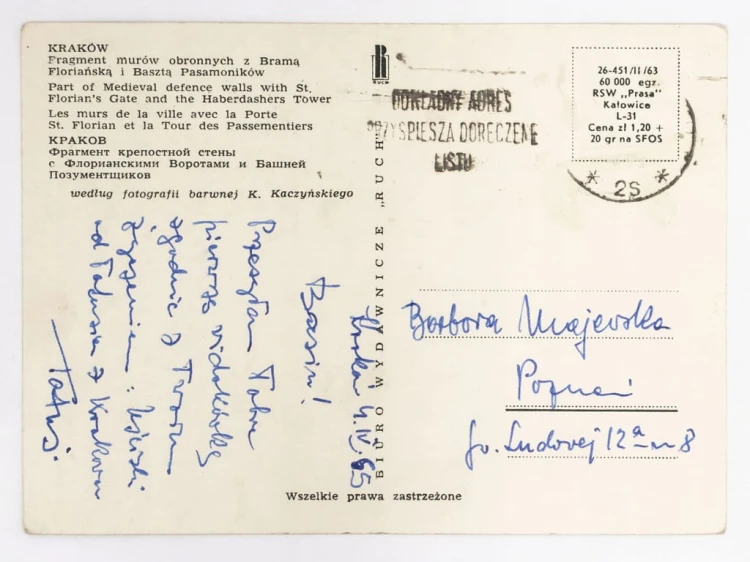 KRAKÓW
Fragment murów obronnych z Bramą
Floriańską i Basztą Pasamoników
Part of Medieval defence walls with St.
Florian's Gate and the Haberdashers Tower
Les murs de la ville avec la Porte
St. Florian et la Tour des Passementiers
КРАКОВ
Фрагмент крепостной стены
с Флорианскими Воротами и Башней
Позументщиков
według fotografii barwnej K. Kaczyńskiego
RUCH
BIURO WYDAWNICZE „RUCH”
Wszelkie prawa zastrzeżone
DOKŁADNY ADRES
PRZYSPIESZA DORĘCZENIE
LISTU
26-451/II/63
60 000 egz.
RSW „Prasa”
Katowice
L-31
Cena zł 1,20 +
20 gr na SFOS
* 2S *
4.IV.65
Basiu!
Przesyłam Tobie
pierwszą widokówkę
zgodnie z Twoim
życzeniem. Uściski
od Tatusia z Krakowa
Tatuś.
Barbara Majewska
Poznań
Ludowej 12a m 8